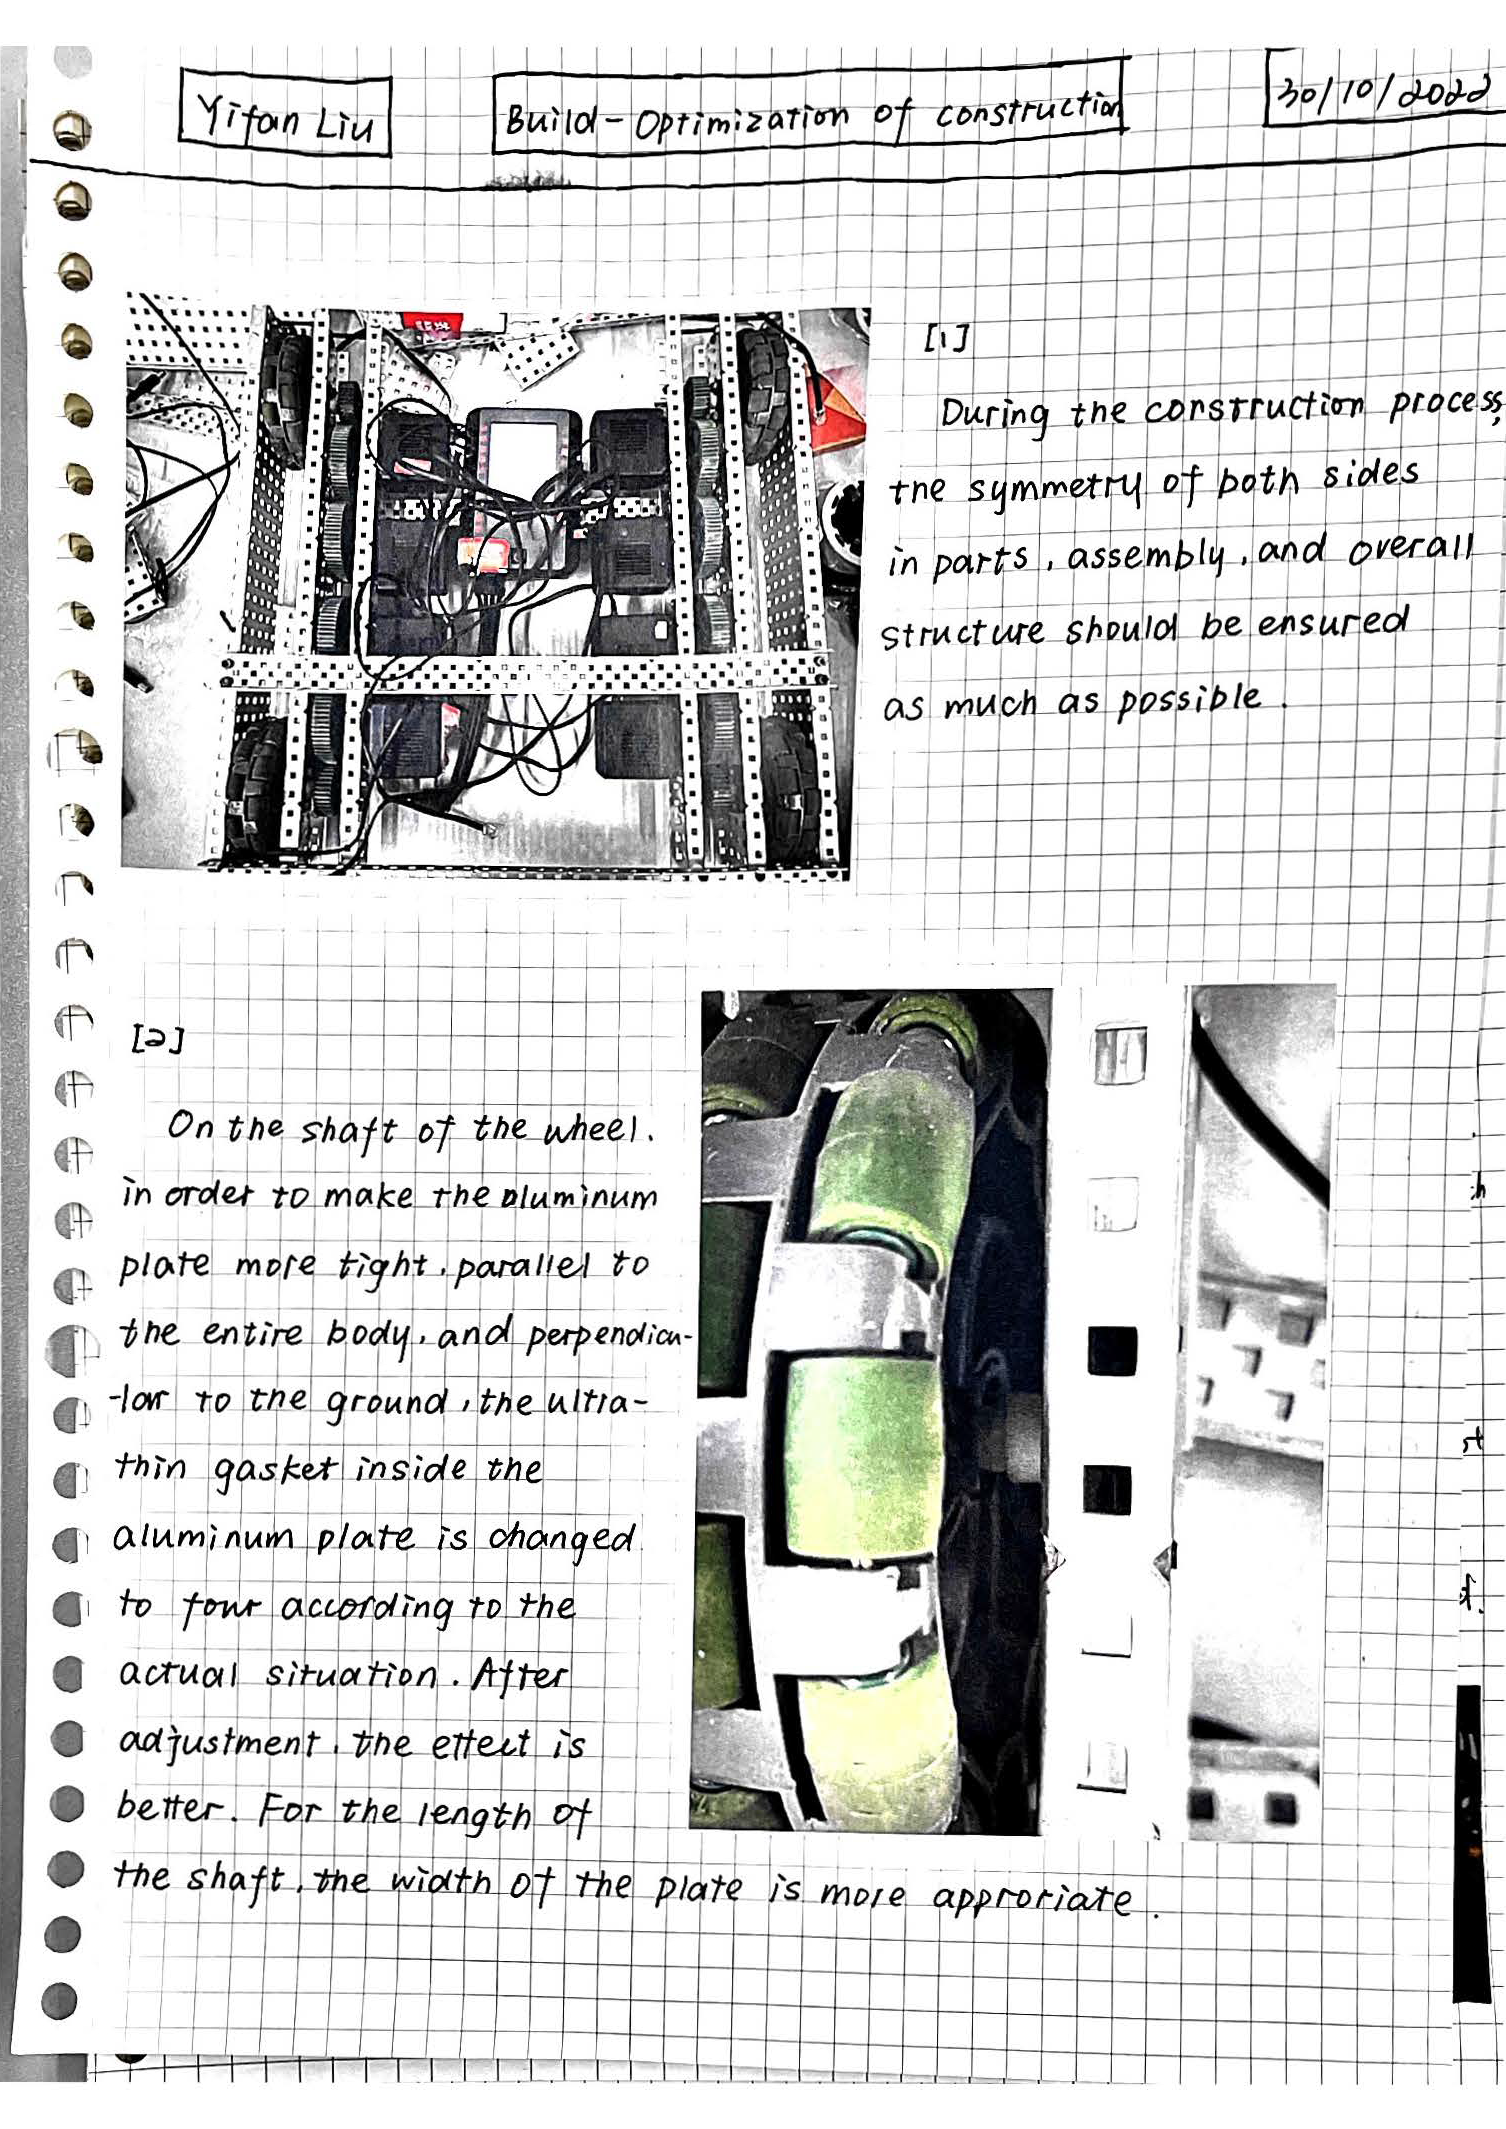 Yifan Liu
Build - Optimization of construction
30/10/2022
[1]
During the construction process,
the symmetry of both sides
in parts, assembly, and overall
structure should be ensured
as much as possible.
[2]
On the shaft of the wheel,
in order to make the aluminum
plate more tight, parallel to
the entire body, and perpendicu-
-lar to the ground, the ultra-
thin gasket inside the
aluminum plate is changed
to four according to the
actual situation. After
adjustment, the effect is
better. For the length of
the shaft, the width of the plate is more approriate.